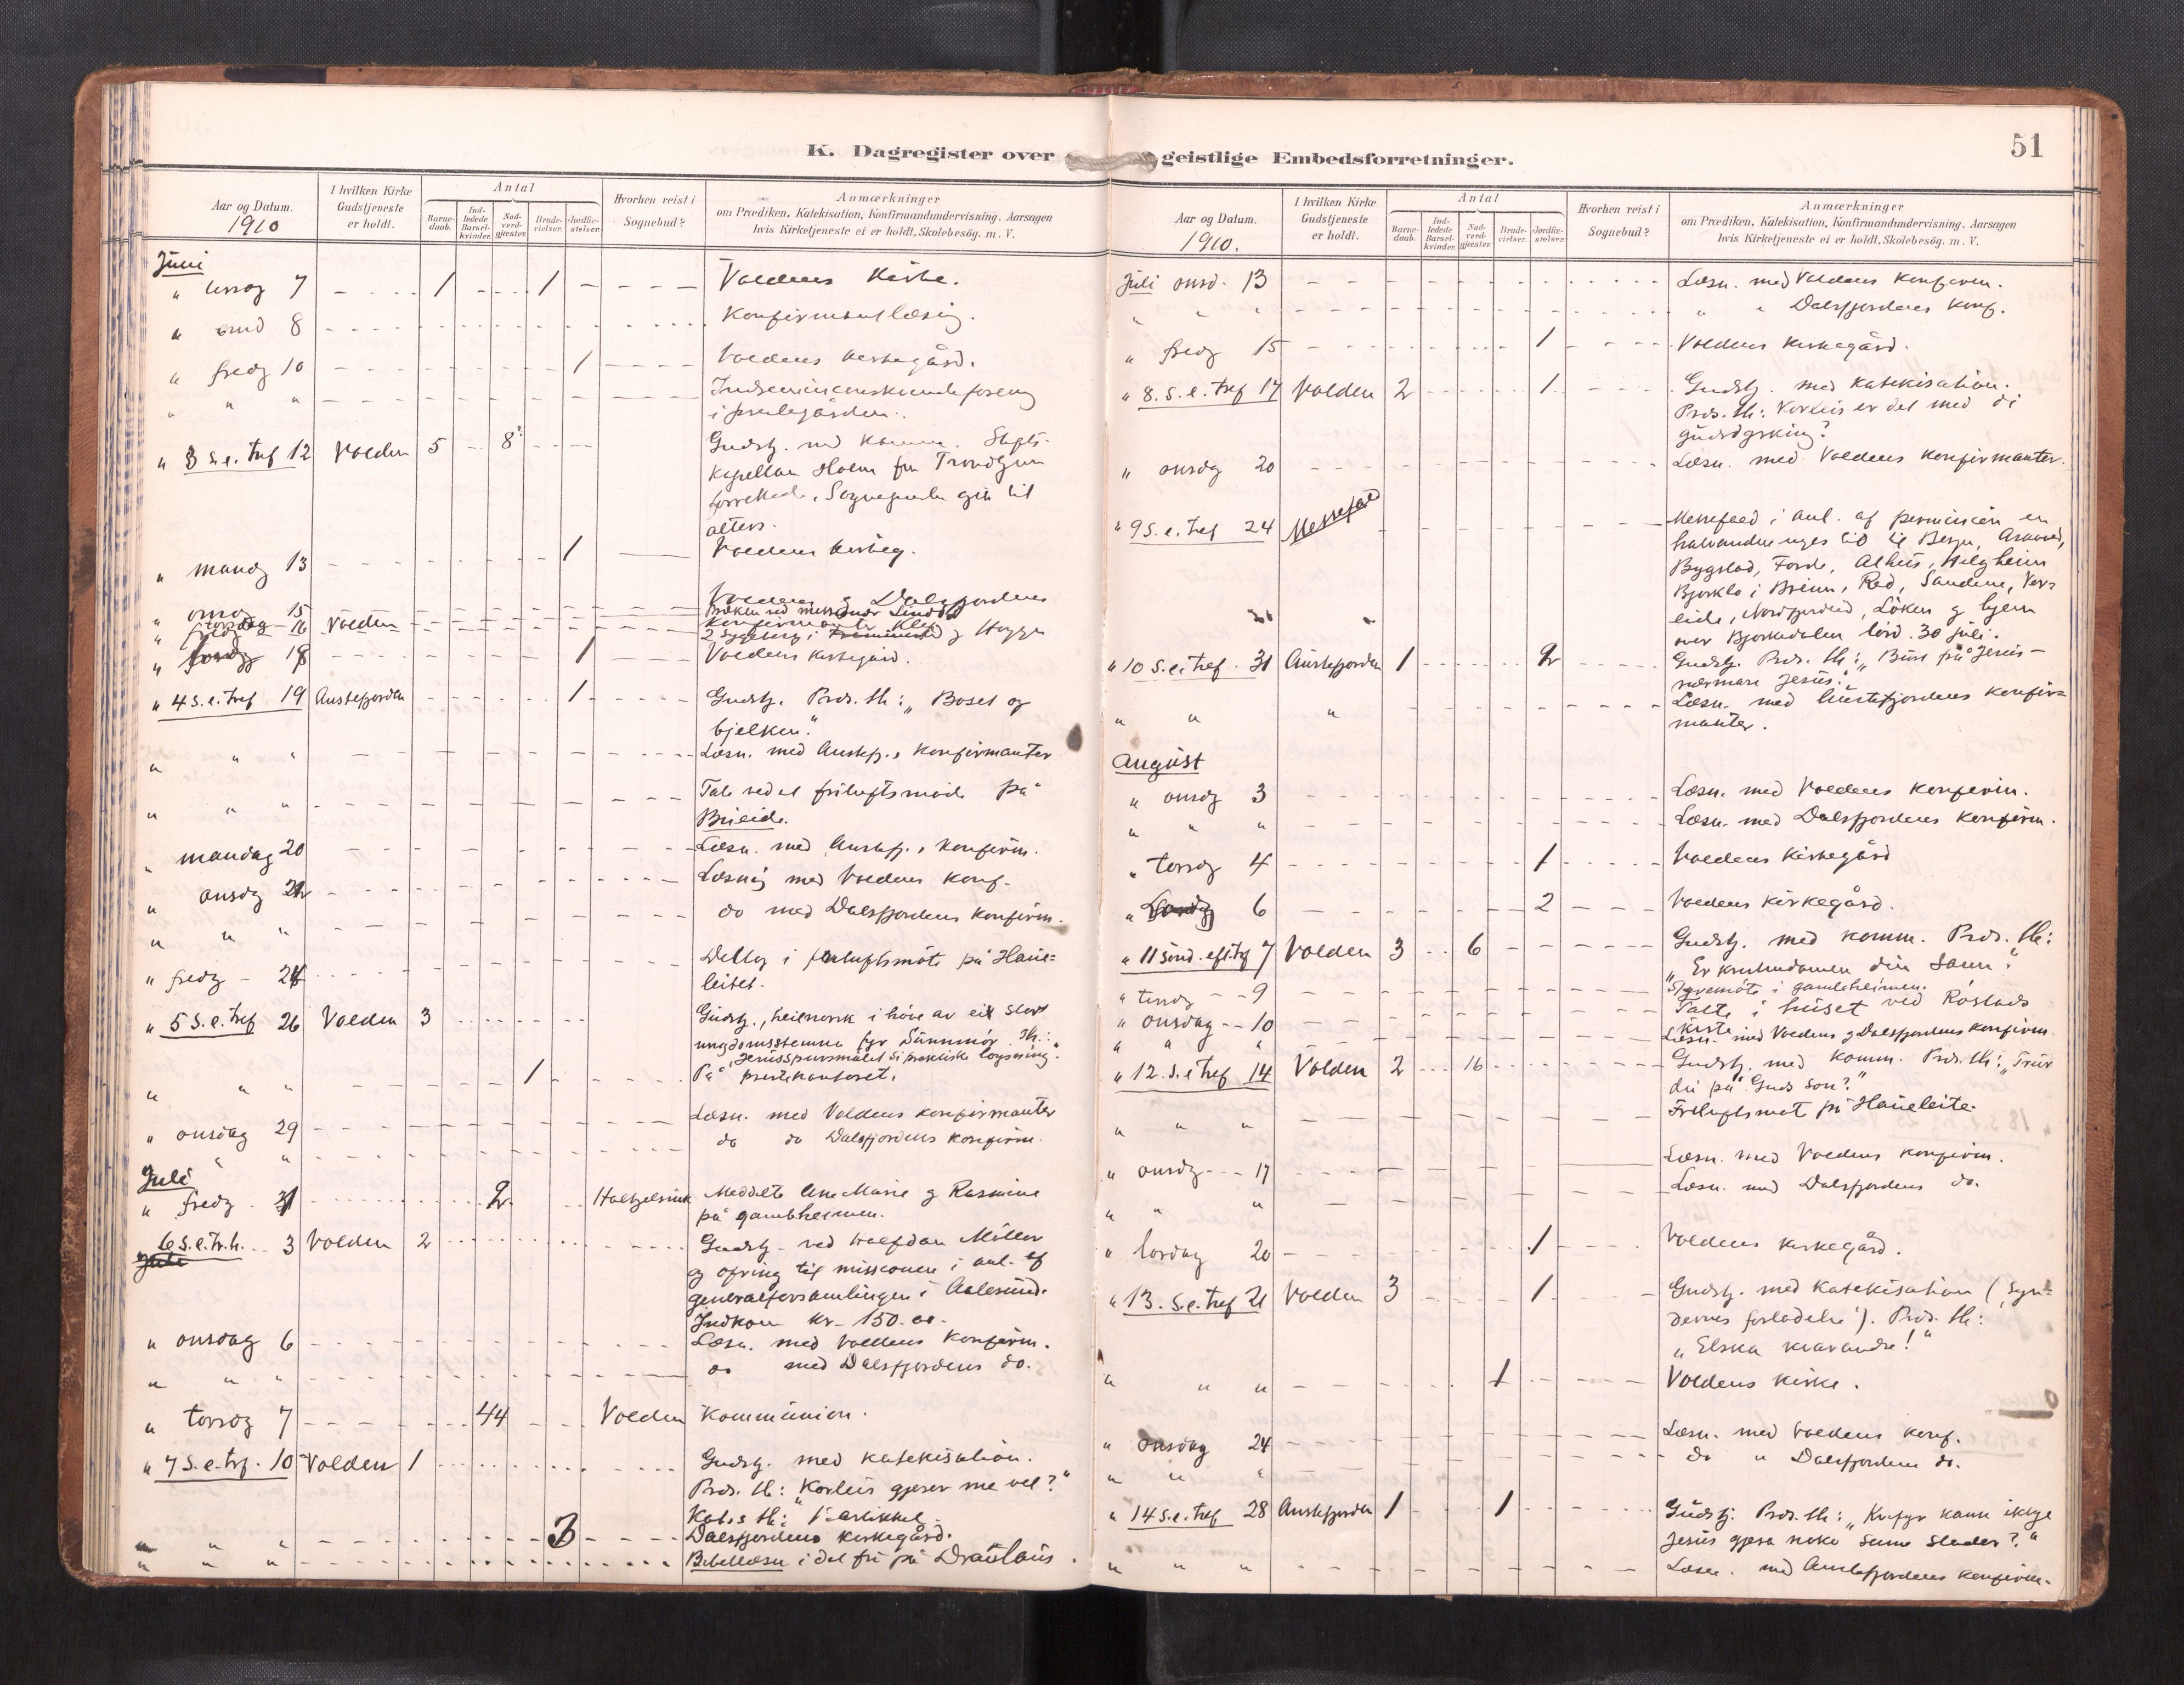 K. Dagregister over geistlige Embedsforretninger.
51
Aar og Datum.
1910
I hvilken Kirke Gudstjeneste er holdt.
Antal
Barne-daab.
Ind-ledede Barsel-kvinder.
Nad-verd-gjæster.
Brude-vielser.
Jordfæ-stelser.
Hvorhen reist i Sognebud?
Anmærkninger
om Prædiken, Katekisation, Konfirmandundervisning, Aarsagen
hvis Kirketjeneste ei er holdt, Skolebesög. m. V.
Juni
" 7 1 1 Voldens Kirke.
" onsd 8
" fredg 10 1 Voldens kirkegård.
" " "
" 3 S. e. tref 12 Volden 5 8 Gudstj. med Komm. Stifts-
kapellan Holm fra Trondhjem
til
alters.
" mandg 13 1 Voldens kirkeg.
" onsdg 15 Voldens g Dalsfjordens
" torsdag 16 Volden
18 1 Voldens kirkegård.
" 4 S. e. tref 19 Austefjorden 1 Gudstj. Præd. th: „Boset og
bjelken."
" " " Læsn. med Austefj.s Konfirmanter
" " " Tale ved et friluftsmöde på
Brieide.
" mandag 20 Læsn. med Austefj.s konfirm.
" onsdg 22 Læsning med Voldens konf.
" " " do med Dalsfjordens konfirm.
" fredg - 24 i friluftsmöte på Haue=
leitet.
" 5 S. e. tref 26 Volden 3 Gudstj., heilnorsk i höve av eit stort
ungdomsstemna fyr Sunnmör. Th.:
„Jesusspursmålet si praktiske loysning."
" " " 1 På prestekontoret.
" onsdag 29 Læsn. med Voldens konfirmanter
" " do do Dalsfjordens konfirm.
Juli
" fredg. 1 2 Meddelte Ane Marie g Rasmine
på gamleheimen.
6 S. e. tr. h. 3 Volden 2 Gudstj. ved Halfdan Möller
g ofring til missionen i anl. af
generalforsamlingen i Aalesund.
Indkom kr. 150.00.
" onsdag 6 Læsn. med Voldens Konfirm.
" " " do med Dalsfjordens do.
" torsdg 7 44 Volden Kommunion.
" 7 S. e. trf. 10 Volden 1 Gudstj. med katekisation.
Præd. th: „Korleis gjerer me vel?"
Kat.s th:
" " " 3 Dalsfjordens kirkegård.
" " " Bibellæsn i det fri på Draulaus.
Aar og Datum.
1910.
I hvilken Kirke Gudstjeneste er holdt.
Antal
Barne-daab.
Ind-ledede Barsel-kvinder.
Nad-verd-gjæster.
Brude-vielser.
Jordfæ-stelser.
Hvorhen reist i Sognebud?
Anmærkninger
om Prædiken, Katekisation, Konfirmandundervisning, Aarsagen
hvis Kirketjeneste ei er holdt, Skolebesög. m. V.
Juli onsd. 13 Læsn. med Voldens Konfirm.
" " " " " Dalsfjordens Konf.
" fredg 15 1 Voldens kirkegård.
" 8. S. e. tref 17 Volden 2 1 Gudstj. med Katekisation.
Præd. th: Korleis er det med di
gudsdyrking?
" onsdg 20 Læsn. med Voldens Konfirmanter.
" 9 S. e. tref 24 Messefald Messefald i anl. af permission en
halvanden uges tid til Bergen,
Bygstad, Förde, Alhus, Helgheim
Bjorklo i Breim, Red, Sandene, Ver=
eide, Nordfjordeid, Löken g hjem
over Bjorkedalen lörd. 30 juli.
" 10 S. e. tref. 31 Austefjorden 1 2 Gudstj. Præd. th: „Burt frå Jesus -
nærmare Jesus."
" " " Læsn. med Austefjordens konfir=
manter.
August
" onsdg 3 Læsn. med Voldens konfirm.
" " " Læsn. med Dalsfjordens konfirm.
" torsdg 4 1 Voldens kirkegård
" 6 2 Voldens kirkegård.
" 11 sönd. eft. trf 7 Volden 3 6 Gudstj. med komm. Præd. th:
„Er kristendomen din sann?"
" tirsdg - - 9 Styremöte i gamleheimen.
" onsdag - - 10 Talte i huset ved Röstads
kiste
" " " Læsn. med Voldens g Dalsfjordens konfirm.
" 12. S. e tref 14 Volden 2 16 Gudstj. med komm. Præd. th: „Trur
du på Guds son?"
" " " Friluftsmöt på Haueleite.
" onsdg - - 17 Læsn. med Voldens konfirm.
" " " Læsn. med Dalsfjordens do.
" lördag 20 1 Voldens kirkegård.
" 13. S. e. tref 21 Volden 3 1 Gudstj. med Katekisation („Syn=
dernes forladelse"). Præd. th:
„Elska kvarandre!"
" " " 1 Voldens kirke.
" onsdag 24 Læsn. med Voldens konf.
" " " do " Dalsfjordens do.
" 14 S. e. tref 28 Austefjorden 1 1 Gudstj. Præd. th: „Kvifyr kann ikkje
Jesus gjera noko sume stader?"
" " " Læsn. med Austefjordens konfirm.